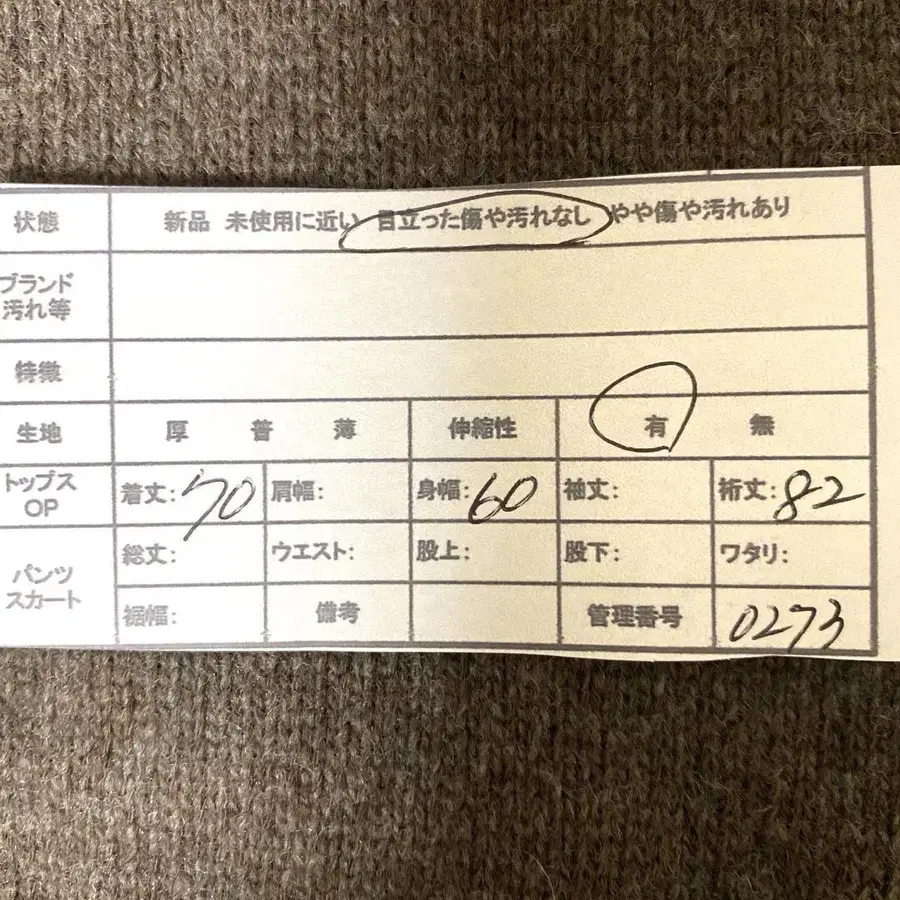 状態 新品 未使用に近い 目立った傷や汚れなし やや傷や汚れあり
ブランド
汚れ等
特徴
生地 厚 普 薄 伸縮性 有 無
トップス
OP
着丈:70 肩幅: 身幅:60 袖丈: 裄丈:82
パンツ
スカート
総丈: ウエスト: 股上: 股下: ワタリ:
裾幅: 備考 管理番号 0273